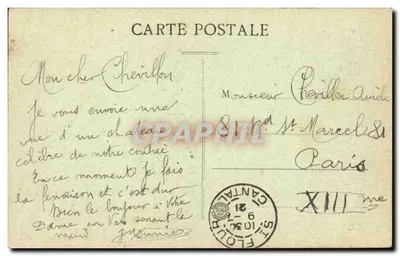 CARTE POSTALE
Mon cher Chevillon
Je vous envoie une
vue d'un chateau
célèbre de notre contrée
En ce moments je fais
la fenaison et c'est dur
Bien le bonjour à votre
Dame en vous serrant la
main
Monsieur Chevillon
81 Bd St Marcel 81
Paris
XIIIme
ST FLOUR
CANTAL
10 30
9 -7
21
PHIL